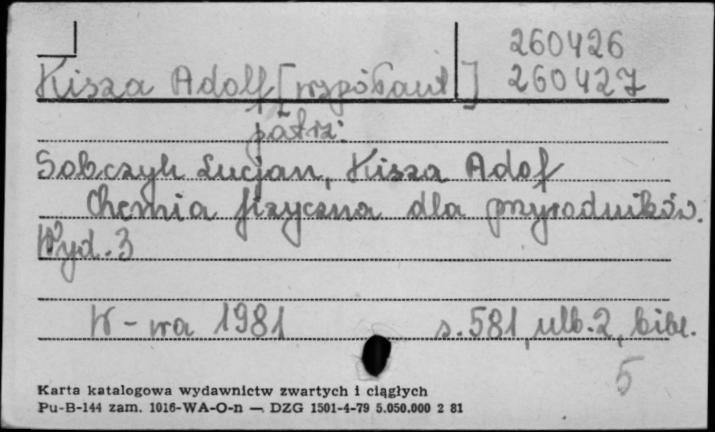 260426
Kisza Adolf [współaut] 260427
patrz:
Sobczyk Lucjan, Kisza Adof
Chemia fizyczna dla przyrodników.
Wyd. 3
W-wa 1981 s. 581, nlb. 2, bibl.
5
Karta katalogowa wydawnictw zwartych i ciągłych
Pu-B-144 zam. 1016-WA-O-n — DZG 1501-4-79 5.050.000 2 81